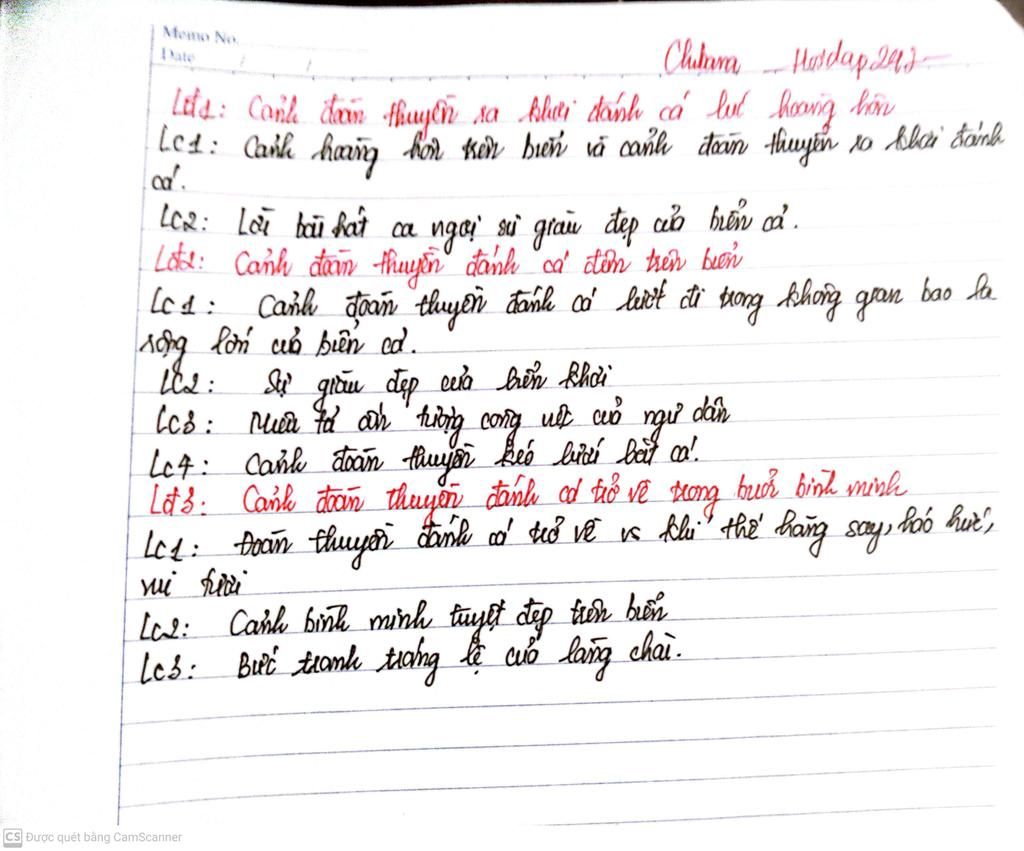 Memo No.
Date / /
Chihara - Hoidap247
Lđ1: Cảnh đoàn thuyền ra khơi đánh cá lúc hoàng hôn
Lc1: Cảnh hoàng hôn trên biển và cảnh đoàn thuyền ra khơi đánh
cá.
Lc2: Lời bài hát ca ngợi sự giàu đẹp của biển cả.
Lđ2: Cảnh đoàn thuyền đánh cá đêm trên biển
Lc1: Cảnh đoàn thuyền đánh cá lướt đi trong không gian bao la
rộng lớn của biển cả.
Lc2: Sự giàu đẹp của biển khơi
Lc3: Miêu tả ấn tượng công việc của ngư dân
Lc4: Cảnh đoàn thuyền kéo lưới bắt cá.
Lđ3: Cảnh đoàn thuyền đánh cá trở về trong buổi bình minh
Lc1: Đoàn thuyền đánh cá trở về vs khí thế hăng say, háo hức,
vui tươi
Lc2: Cảnh bình minh tuyệt đẹp trên biển
Lc3: Bức tranh tráng lệ của làng chài.
CS Được quét bằng CamScanner